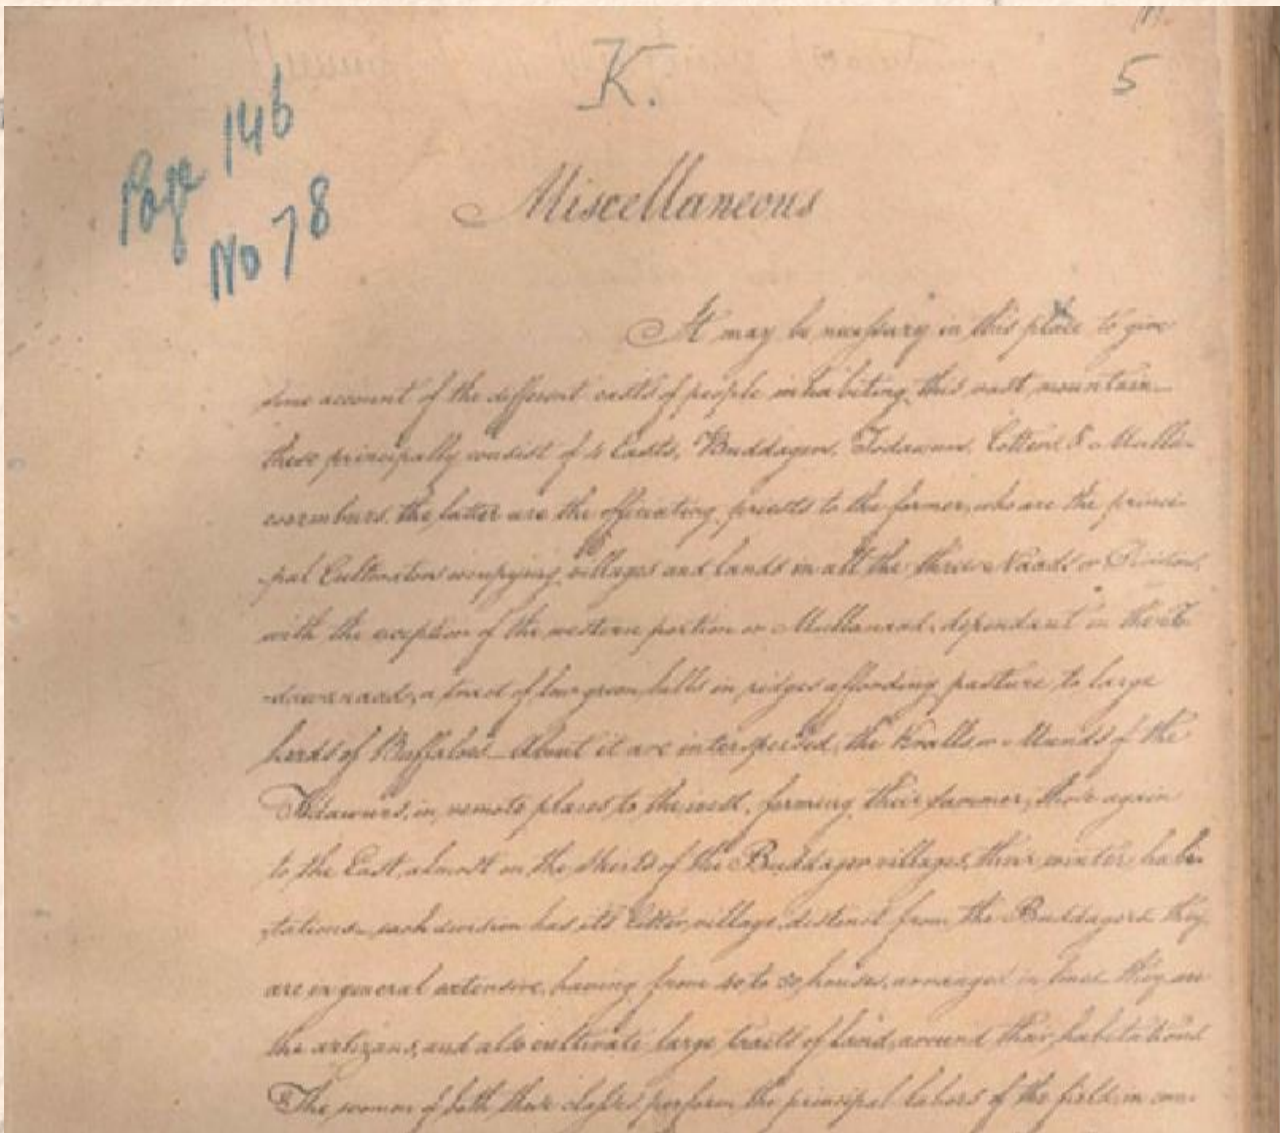 K.
5
Page 146
No 78
Miscellaneous
It may be necessary in this place to give
some account of the different casts of people inhabiting this vast mountain
these principally consist of 4 Casts, Buddagers, Todawurs, Cotters & Mullu-
coorumburs, the latter are the officiating priests to the former, who are the princi-
pal Cultivators occupying villages and lands in all the three Naads or Divisions,
with the exception of the western portion or dependant in the To-
dawanaad, a tract of low green hills in ridges affording pasture to large
herds of Buffaloes About it are interspersed, the Kralls or Munds of the
Todawurs, in remote places to the west, forming their summer, those again
to the East, almost on the skirts of the Buddager villages, their winter habi-
tations each division has its Cotter village, distinct from the Buddagers they
are in general extensive, having from to houses, arranged in lines they are
the artizans, and also cultivate large tracts of land, around their habitations
The women of both these classes perform the principal labors of the field, in con-